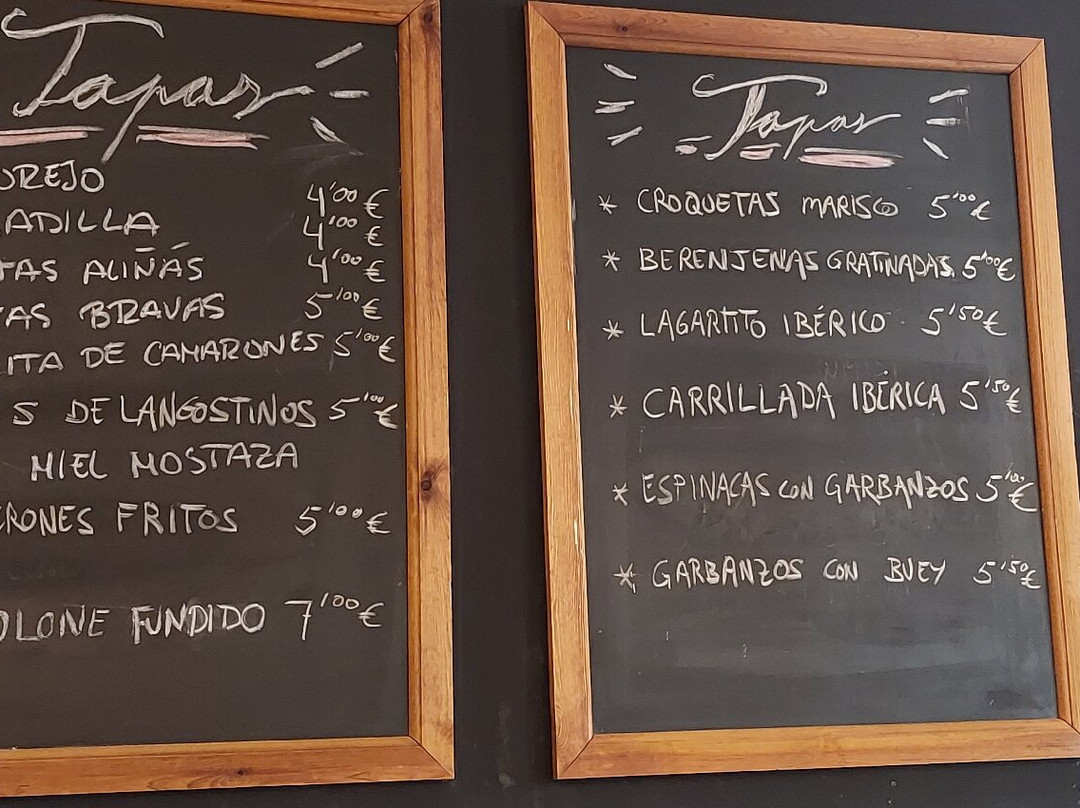 Tapas
OREJO 4'00 €
ADILLA 4'00 €
TAS ALIÑÁS 4'00 €
AS BRAVAS 5'00 €
ITA DE CAMARONES 5'00 €
S DE LANGOSTINOS 5'00 €
MIEL MOSTAZA
RONES FRITOS 5'00 €
OLONE FUNDIDO 7'00 €
Tapas
* CROQUETAS MARISCO 5'00 €
* BERENJENAS GRATINADAS 5'00 €
* LAGARTITO IBÉRICO 5'50 €
* CARRILLADA IBÉRICA 5'50 €
* ESPINACAS CON GARBANZOS 5'00 €
* GARBANZOS CON BUEY 5'50 €